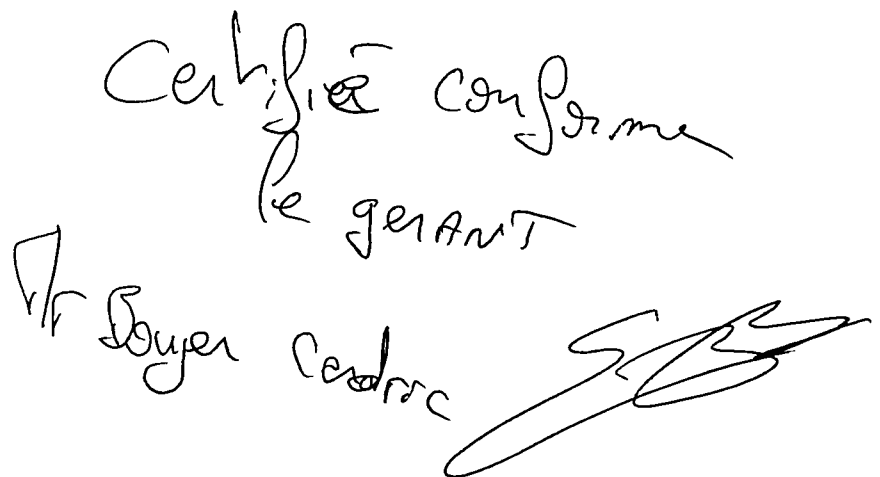 Certifié conforme
le gerANT
Mr Boyer Cedric